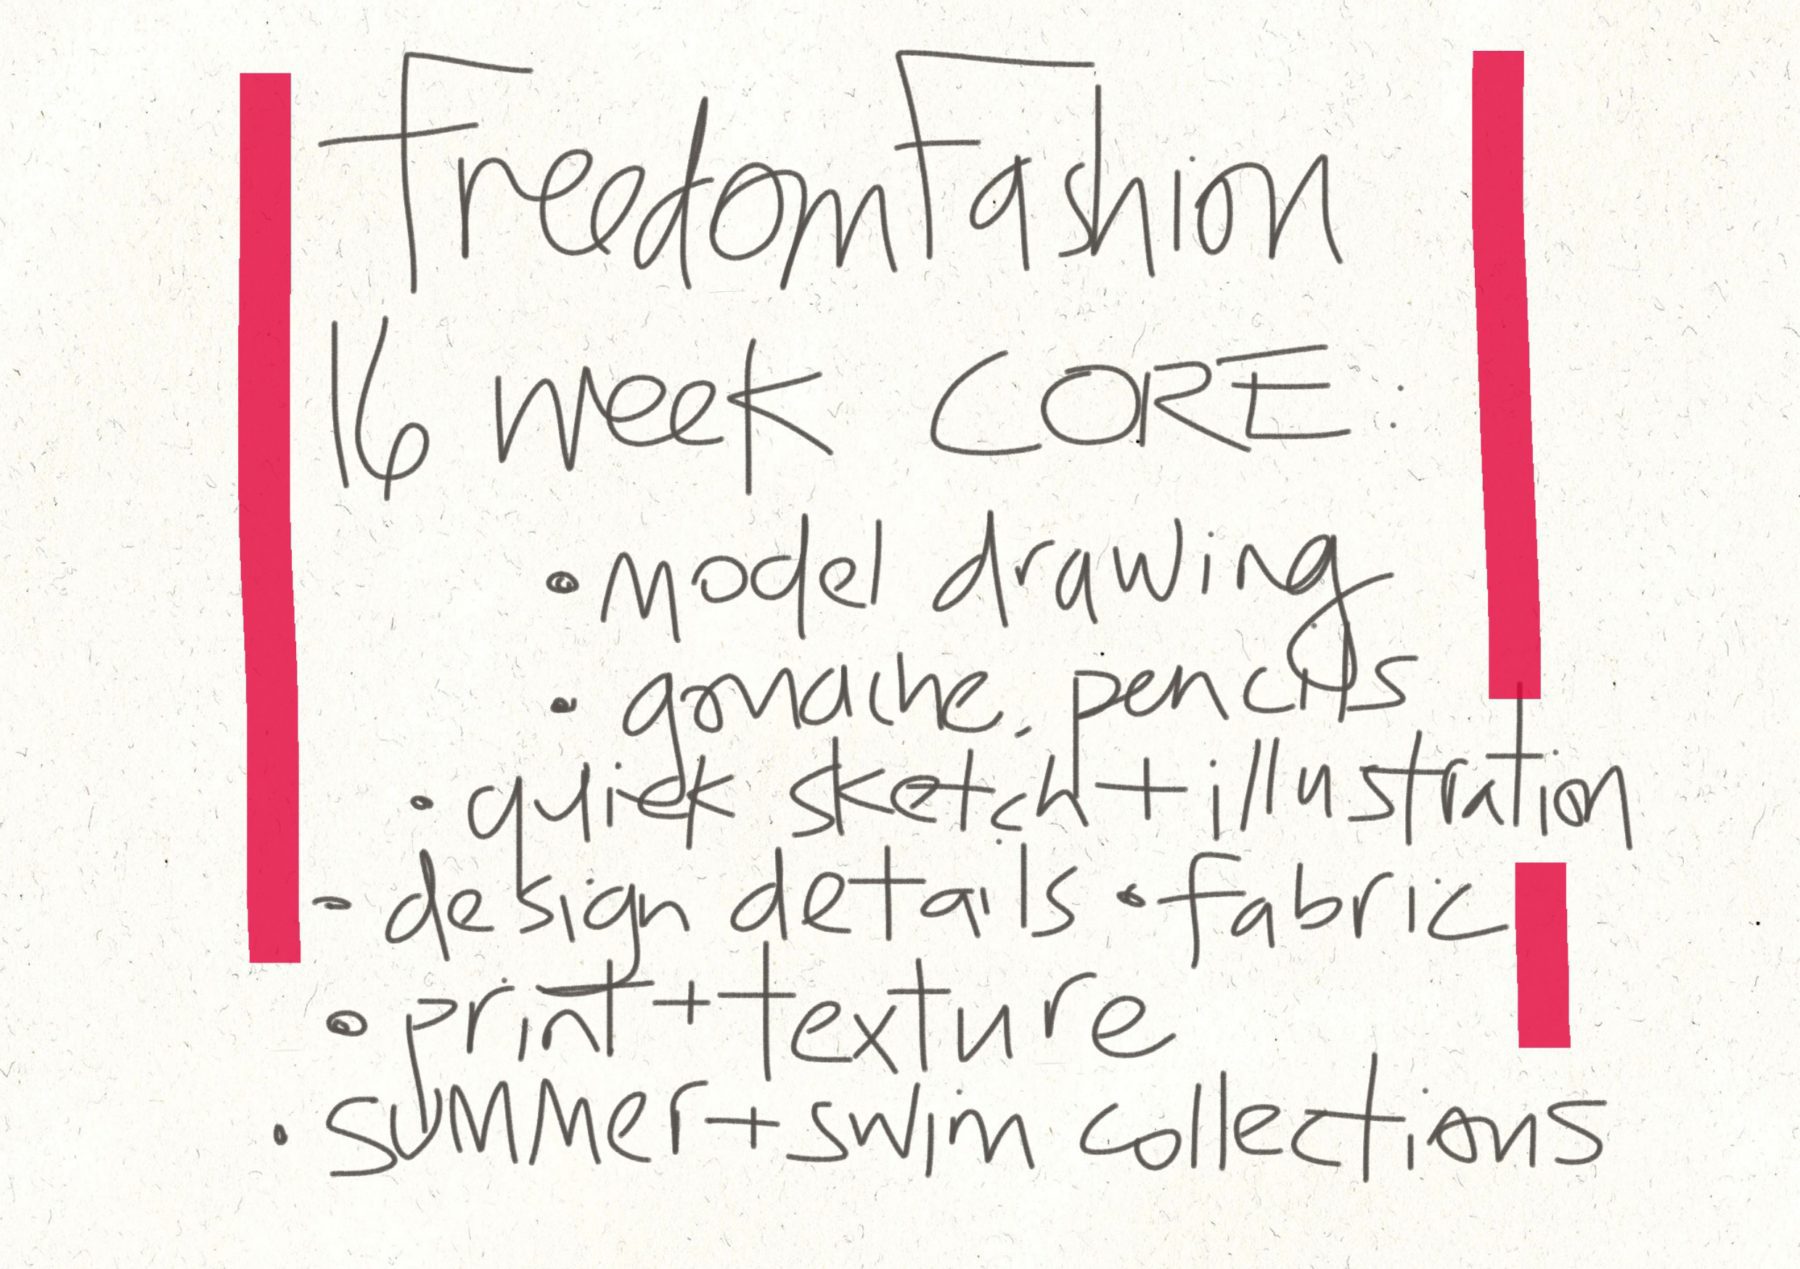 FreedomFashion
16 week CORE:
• model drawing
• gouache, pencils
• quick sketch + illustration
- design details • fabric
• print + texture
• summer + swim collections